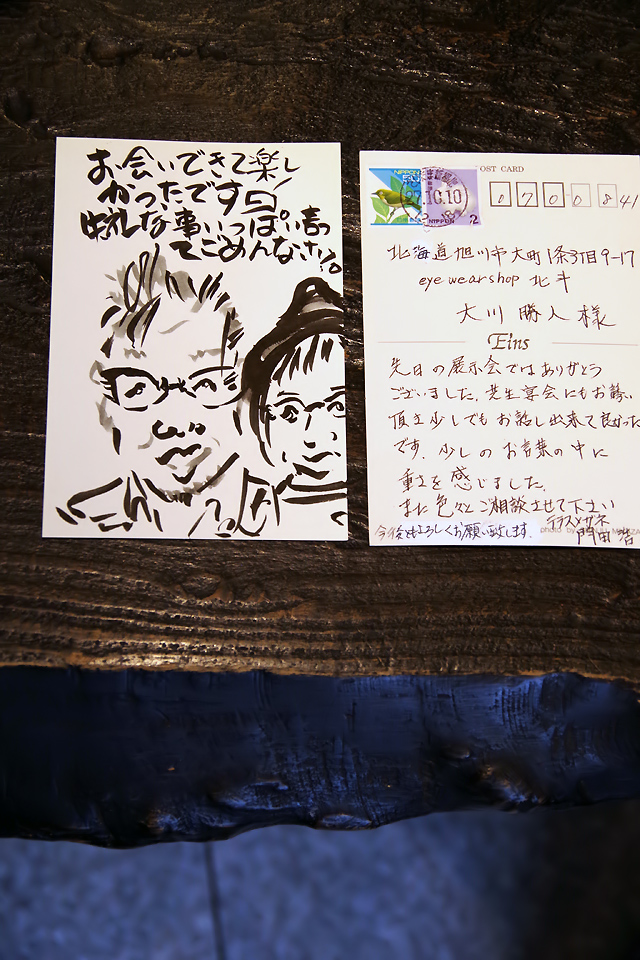 お会いできて楽し
かったです
失礼な事いっぱい言っ
てごめんなさい。
NIPPON
NIPPON
27.10.10
OST CARD
070084
北海道旭川市大町1条3丁目9-17
eye wear shop 北斗
大川 勝人 様
Eins
先日の展示会ではありがとう
ございました。先生宴会にもお誘い
頂き少しでもお話し出来て良かった
です。少しのお言葉の中に
重さを感じました。
また色々とご相談させて下さい
今後ともよろしくお願い致します。
テラスメガネ
門田
photo by